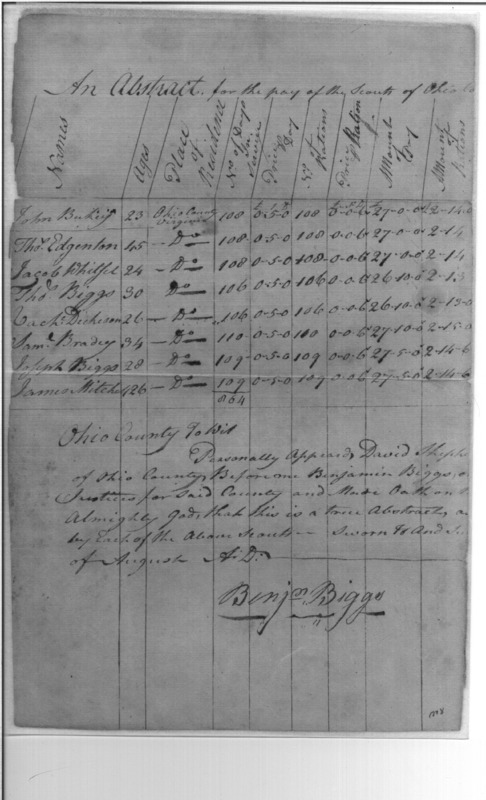 An Abstract for the pay of the Scouts of Ohio Co
Names ages Place of Residence No of Days in Service Price P Day No Rations Price P Ration Amount of Pay Amount of Rations
John Bukey 23 Ohio County Virginia 108 0-5-0 108 0-0-6 27-0-0 2-14-0
Thos Edgenton 45 - Do 108 0-5-0 108 0-0-6 27-0-0 2-14
Jacob 24 - Do 108 0-5-0 108 0-0-6 27-0-0 2-14
Thos Biggs 30 Do 106 0-5-0 106 0-0-6 26-10-0 2-13
Zachh Dickeson 26 - Do 106 0-5-0 106 0-0-6 26-10-0 2-13-0
Saml Bradey 34 - Do 110 0-5-0 110 0-0-6 27-10-0 2-15-0
Joseph Biggs 28 - Do 109 0-5-0 109 0-0-6 27-5-0 2-14-6
James Mitchel 26 - Do 109 0-5-0 109 0-0-6 27-5-0 2-14-6
864
Ohio County To Wit
Personally Appeard, David Sheph
of Ohio County, Before me Benjamin Biggs, o
Justices, for Said County and Made Oath on
Almighty God, that this is a true Abstract, a
by Each of the Above Scouts - Sworn to And Su
of August A.D.
Benjn Biggs